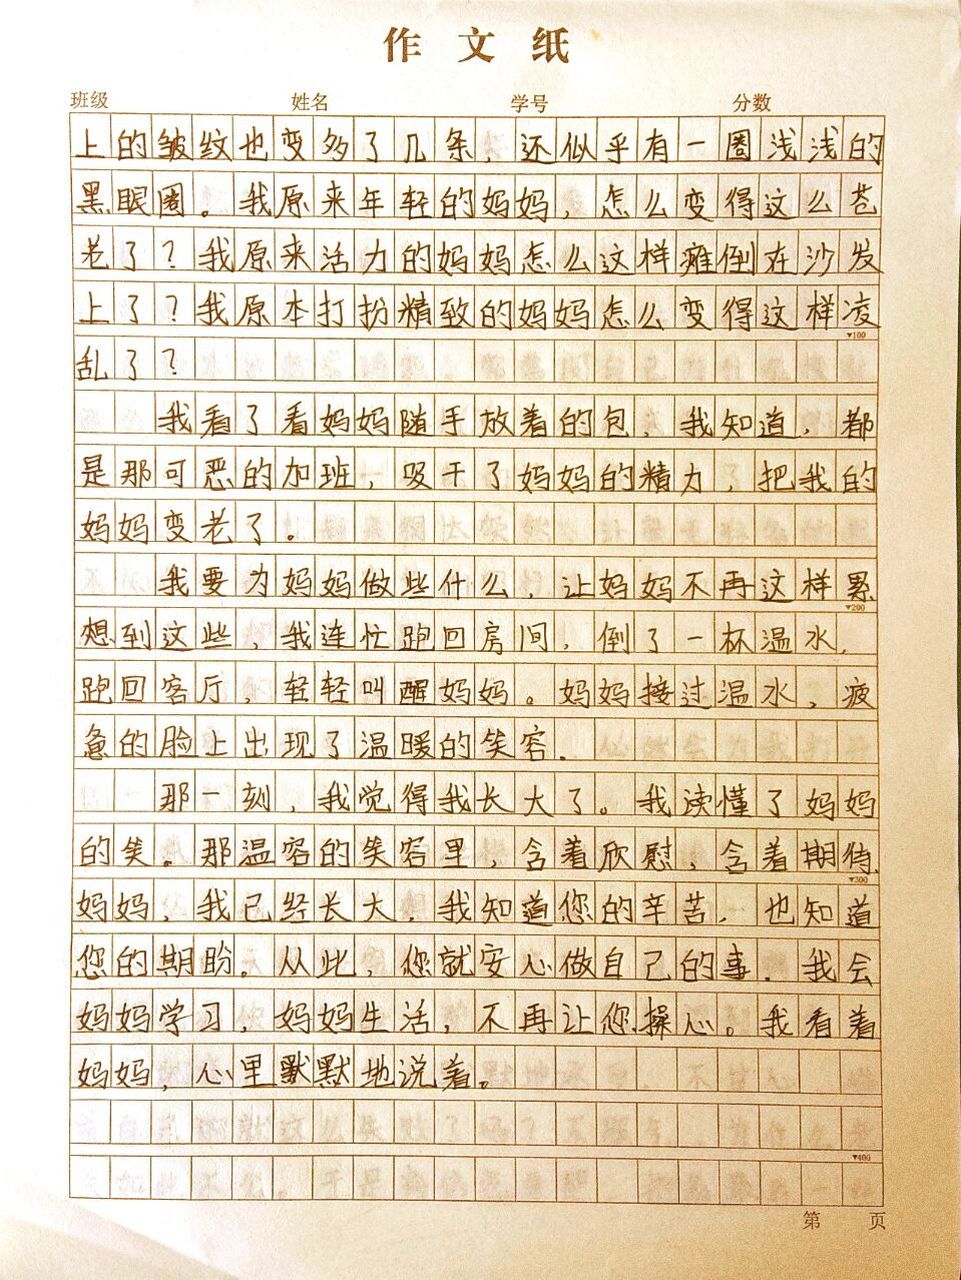 作文纸
班级 姓名 学号 分数
上的皱纹也变多了几条，还似乎有一圈浅浅的
黑眼圈。我原来年轻的妈妈，怎么变得这么苍
老了？我原来活力的妈妈怎么这样瘫倒在沙发
上了？我原本打扮精致的妈妈怎么变得这样凌
▾100
乱了？
我看了看妈妈随手放着的包，我知道，都
是那可恶的加班，吸干了妈妈的精力，把我的
妈妈变老了。
我要为妈妈做些什么，让妈妈不再这样累
▾200
想到这些，我连忙跑回房间，倒了一杯温水，
跑回客厅，轻轻叫醒妈妈。妈妈接过温水，疲
惫的脸上出现了温暖的笑容.
那一刻，我觉得我长大了。我读懂了妈妈
的笑。那温容的笑容里，含着欣慰，含着期待.
▾300
妈妈，我已经长大，我知道您的辛苦，也知道
您的期盼。从此，您就安心做自己的事.我会
妈妈学习，妈妈生活，不再让您操心。我看着
妈妈，心里默默地说着。
▾400
第 页